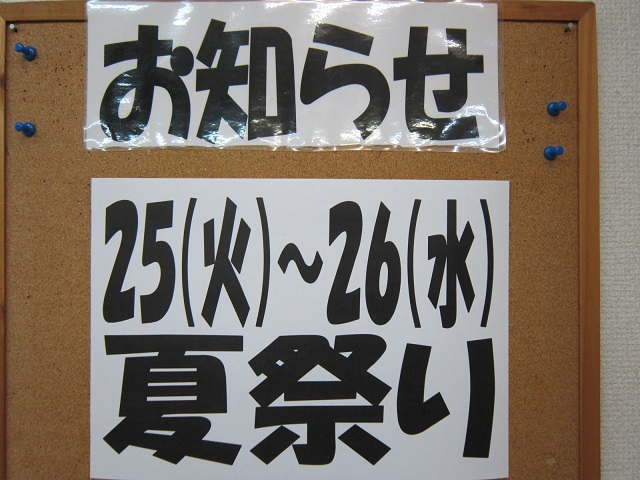 お知らせ
25(火)~26(水)
夏祭り